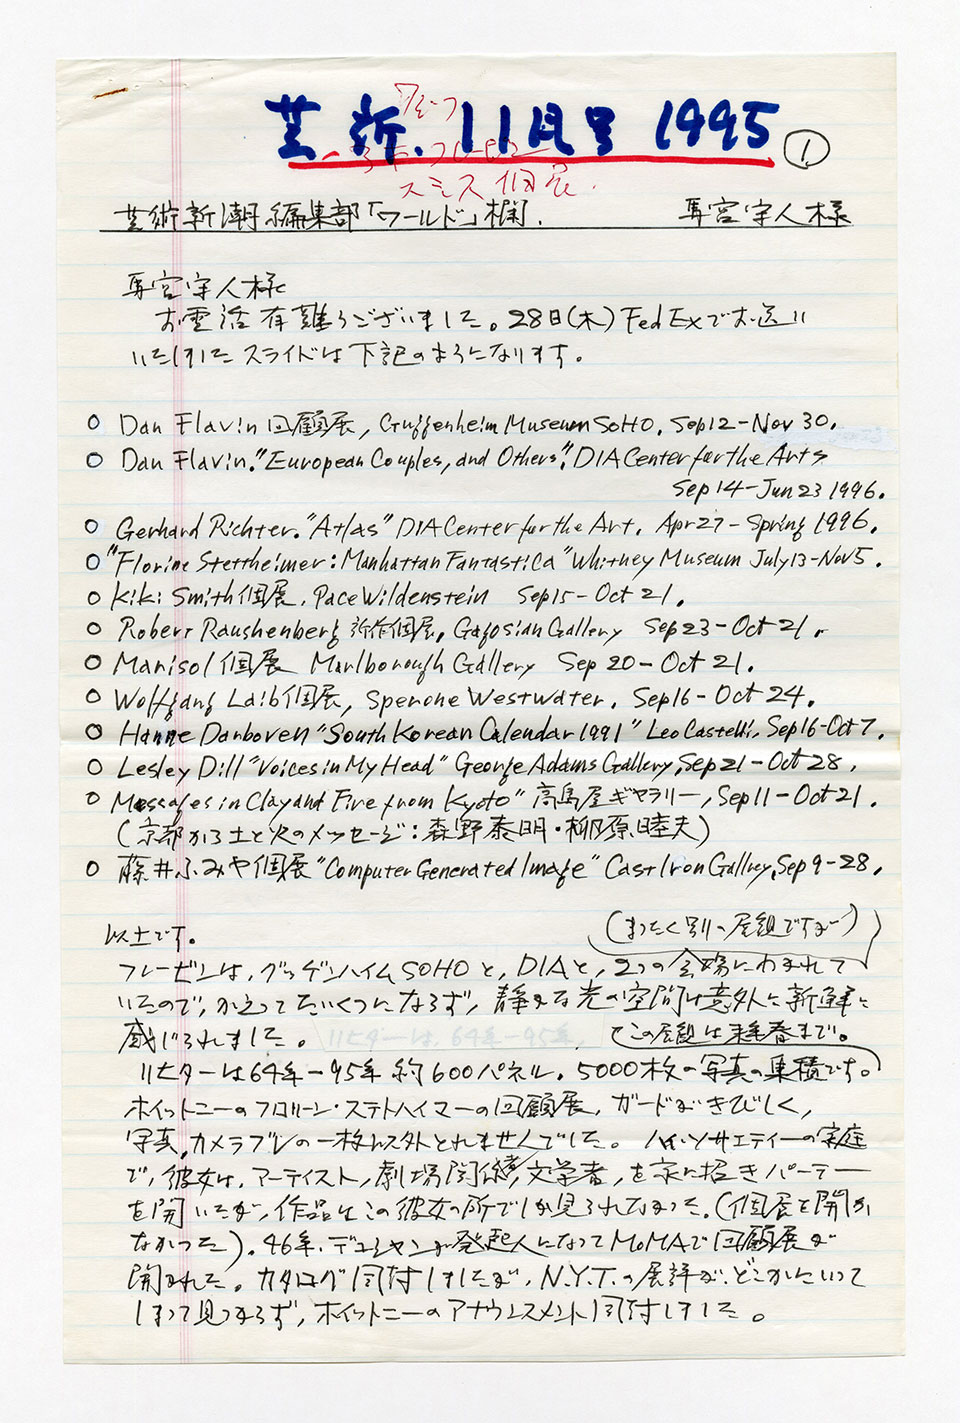 芸新.11月号 1995 ①
スミス個展.
芸術新潮編集部「ワールド」欄.
様
様
お電話有難うございました。28日(木)FedExでお送り
いたしましたスライドは下記のようになります。
○ Dan Flavin 回顧展, Guggenheim Museum SOHO. Sep12-Nov 30.
○ Dan Flavin. "European Couples, and Others". DIA Center for the Arts
Sep 14-Jun 23 1996.
○ Gerhard Richter. "Atlas" DIA Center for the Art. Apr 27-Spring 1996.
○ "Florine Stettheimer: Manhattan Fantastica" Whitney Museum July 13-Nov 5.
○ Kiki Smith個展. Pace Wildenstein Sep15-Oct 21.
○ Robert Raushenberg 新作個展. Gagosian Gallery Sep 23-Oct 21.
○ Marisol個展 Marlborough Gallery Sep 20-Oct 21.
○ Wolfgang Laib個展, Sperone Westwater. Sep16-Oct 24.
○ Hanne Darboven "South Korean Calendar 1991" Leo Castelli. Sep 16-Oct 7.
○ Lesley Dill "Voices in My Head" George Adams Gallery, Sep 21-Oct 28.
○ Messages in Clay and Fire from Kyoto" 高島屋ギャラリー, Sep 11-Oct 21.
(京都から土と火のメッセージ:森野泰明・柳原睦夫)
○ 藤井ふみや個展 "Computer Generated Image" Cast Iron Gallrey, Sep 9-28.
以上です。
(まったく別の展観ですが)
フレービンは, グッゲンハイムSOHOと, DIAと, 2つの会場にわかれて
いたので, かえってたいくつにならず, 静かな光の空間は意外に新鮮に
感じられました。 この展観は来年春まで。
リヒターは64年-95年 約600パネル, 5000枚の写真の集積です。
ホイットニーのフロリーン・ステトハイマーの回顧展, ガードがきびしく,
写真, カメラブレの一枚以外とれませんでした。 ハイ・ソサエティーの家庭
で, 彼女は, アーティスト, 劇場関係, 文学者, を家に招きパーテー
を開いたが, 作品はこの彼女の所でしか見られなかった. (個展を開か
なかった). 46年, デュシャンが発起人になってMoMAで回顧展が
開かれた。カタログ同付しましたが, N.Y.T.の展評が, どこかにいって
しまって見つからず, ホイットニーのアナウンスメント同付しました。